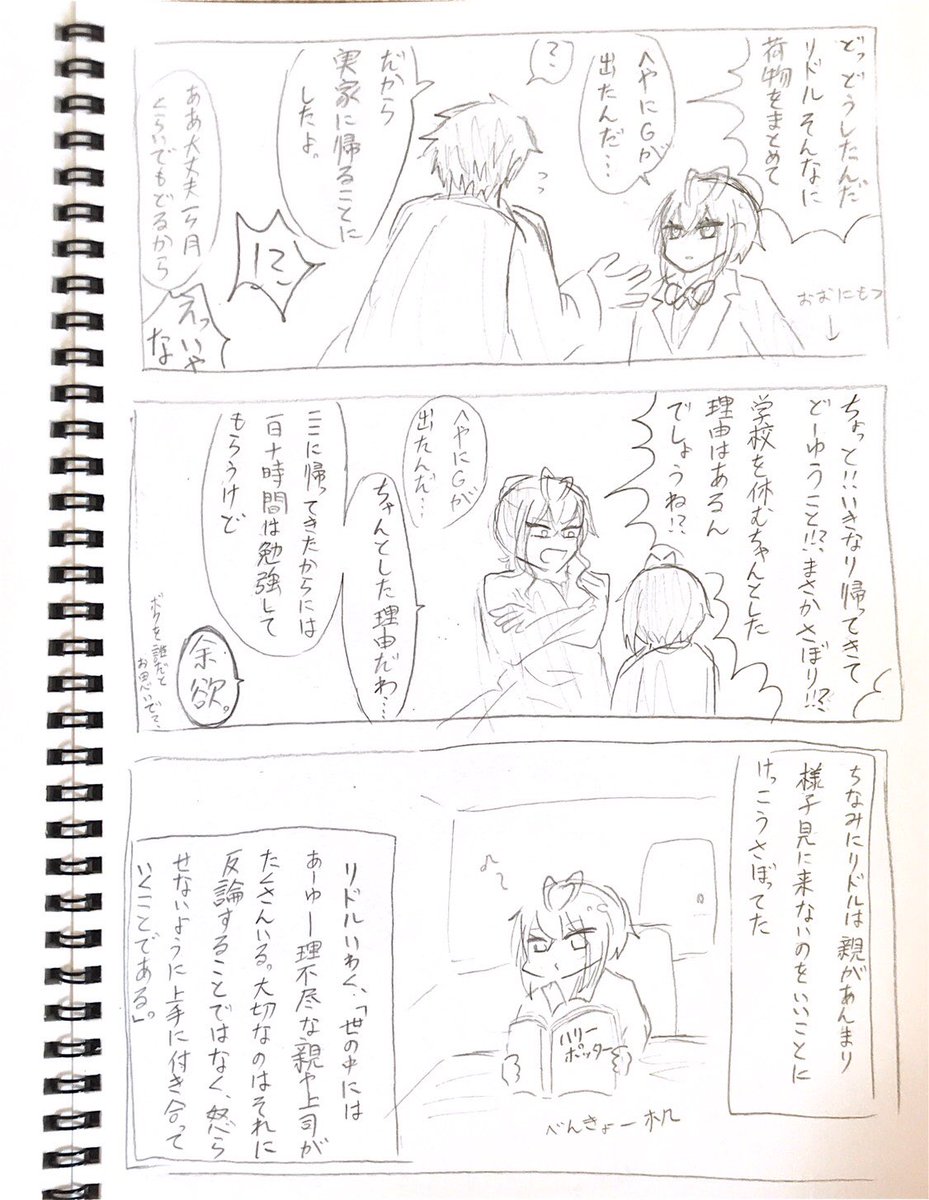 どっどうしたんだ
リドルそんなに
荷物をまとめて
へやにGが
出たんだ…
?
だから
実家に帰ることに
したよ。
に
ああ大丈夫一ヶ月
くらいでもどるから
えっいや
な
おおにもつ
↓
ちょっと!!いきなり帰ってきて
どーゆうこと!!?まさかさぼり!!?
学校を休むちゃんとした
理由はあるん
でしょうね!?
へやにGが
出たんだ…
ちゃんとした理由だわ…
ここに帰ってきたからには
一日十時間は勉強して
もらうけど
余欲。
ボクを誰だと
お思いで?
ちなみにリドルは親があんまり
様子見に来ないのをいいことに
けっこうさぼってた
ハリー
ポッター
べんきょー机
リドルいわく、「世の中には
あーゆー理不尽な親や上司が
たくさんいる。大切なのはそれに
反論することではなく、怒ら
せないように上手に付き合って
いくことである」。